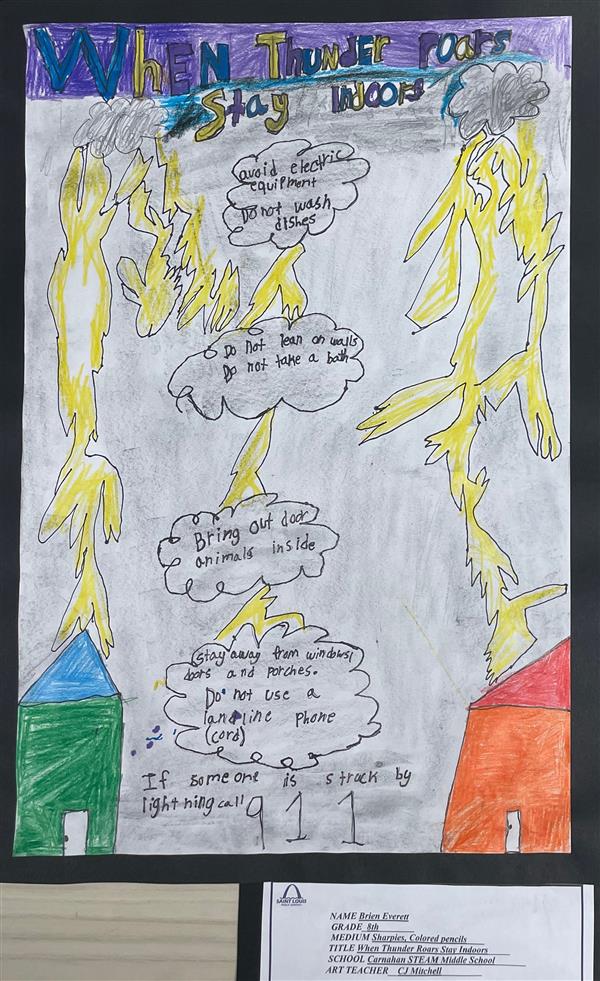 When Thunder roars
Stay Indoors
avoid electric
equipment
Do not wash
dishes
Do not lean on walls
Do not take a bath
Bring out door
animals inside
stay away from windows,
doors and porches.
Do not use a
landline phone
(cord)
If someone is struck by
lightning call 911
SAINT LOUIS
NAME Brien Everett
GRADE 8th
MEDIUM Sharpies, Colored pencils
TITLE When Thunder Roars Stay Indoors
SCHOOL Carnahan STEAM Middle School
ART TEACHER CJ Mitchell